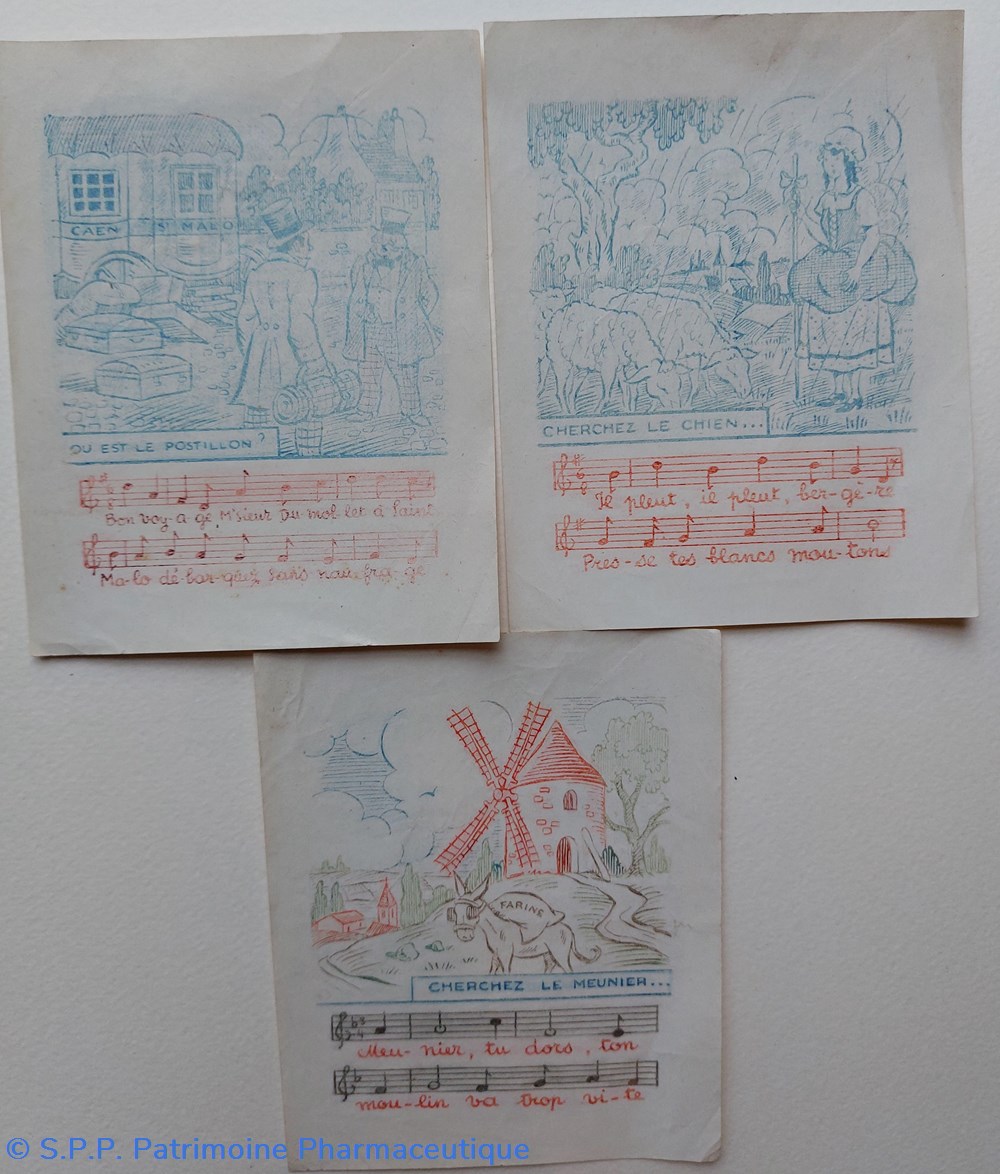 CAEN ST MALO
OU EST LE POSTILLON?
Bon voy-a-ge M'sieur Du-mol-let à Saint
Ma-lo dé-bar-quez sans nau-fra-ge
CHERCHEZ LE CHIEN...
Il pleut, il pleut, ber-gè-re
Pres-se tes blancs mou-tons
FARINE
CHERCHEZ LE MEUNIER...
Meu-nier, tu dors, ton
mou-lin va trop vi-te
© S.P.P. Patrimoine Pharmaceutique